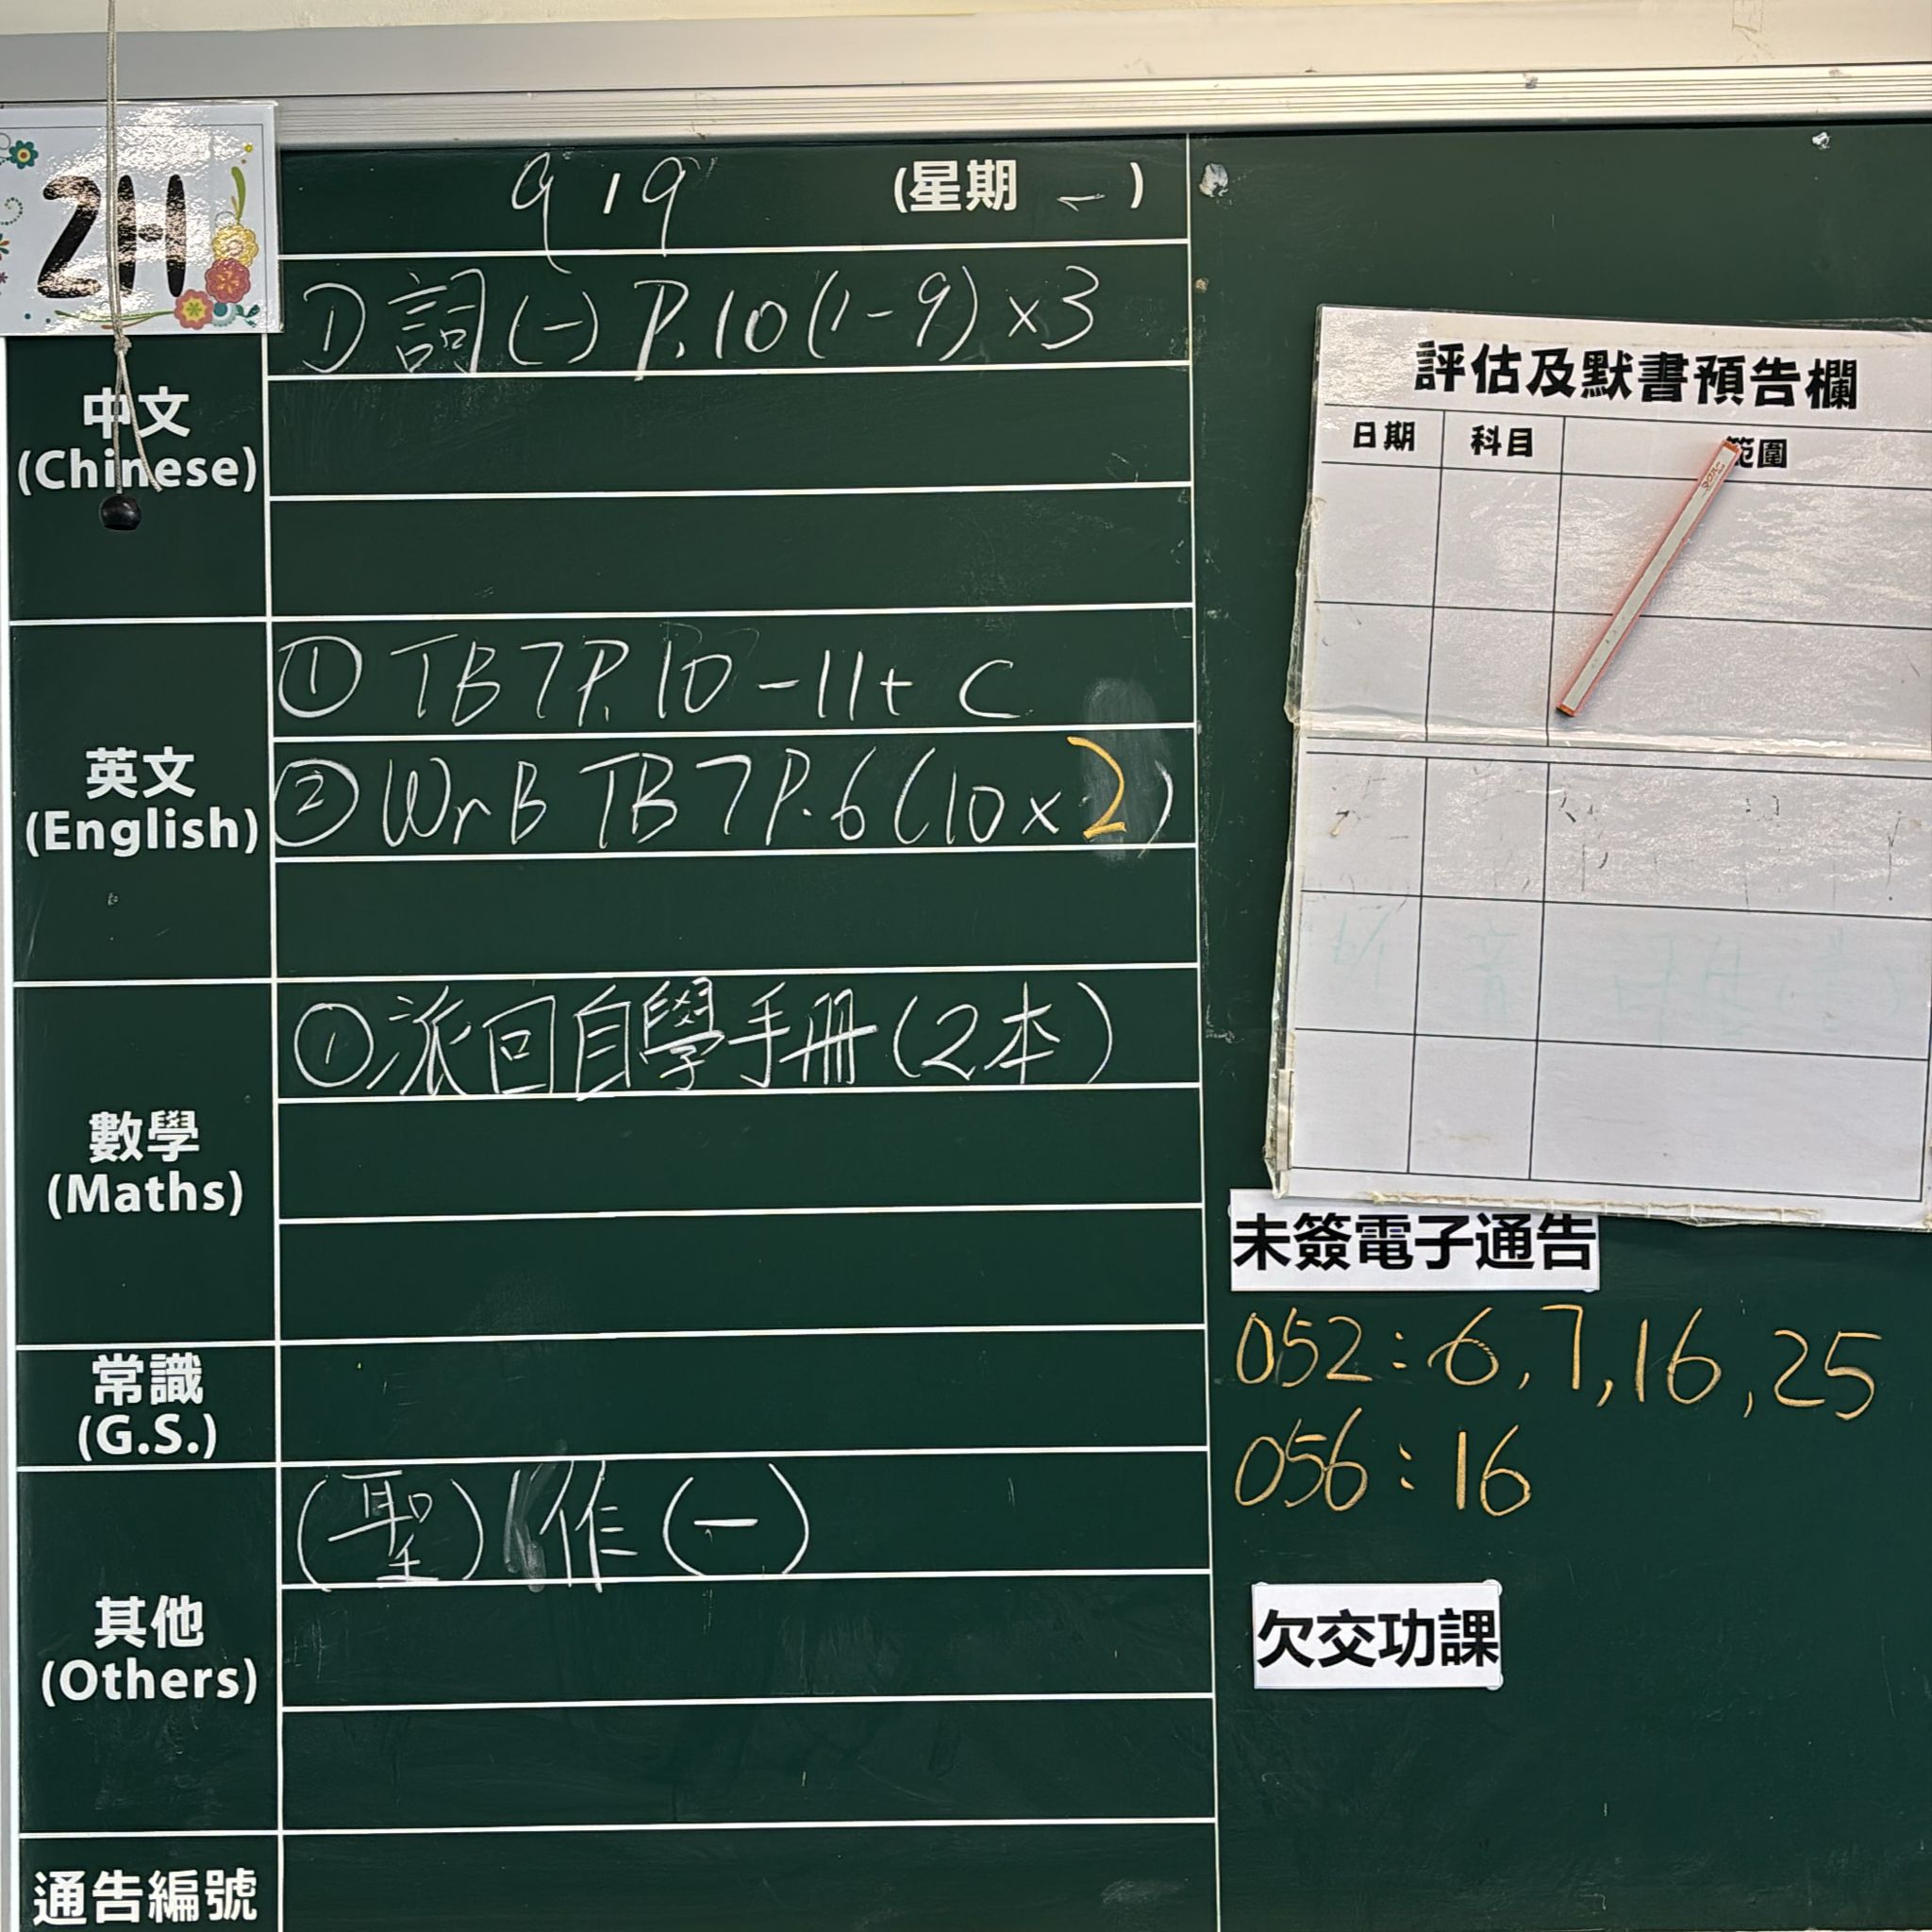 2H
9/9 (星期 一 )
中文
(Chinese)
① 詞(一) P.10(1-9)×3
英文
(English)
① TB7P.10-11+C
② WrB TB7P.6(10×2)
數學
(Maths)
①派回自學手冊(2本)
常識
(G.S.)
其他
(Others)
(聖) 作(一)
通告編號
評估及默書預告欄
日期 科目 範圍
未簽電子通告
052:6,7,16,25
056:16
欠交功課